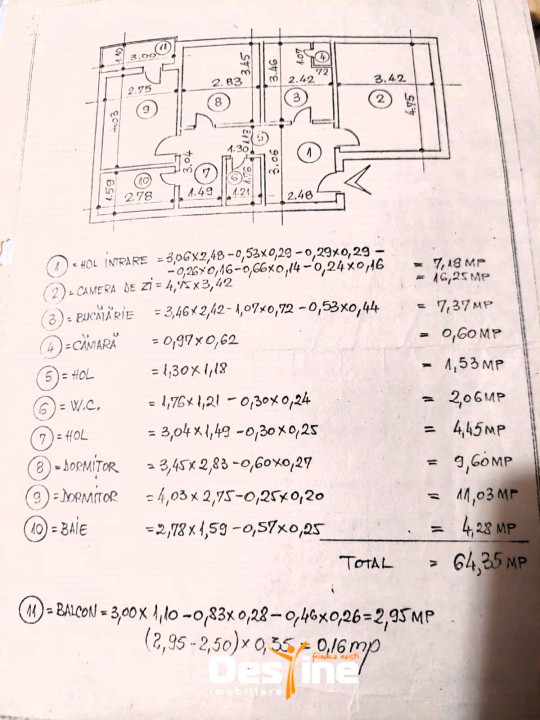 1.10
3.00
11
2.75
9
4.03
2.83
3.45
8
3.46
1.07
4
72
2.42
3
3.42
2
4.75
1.30
1.18
5
3.06
1
3.04
7
6
1.76
1.59
10
2.78
1.49
1.21
2.48
1 = HOL INTRARE = 3,06×2,48-0,53×0,29-0,29×0,29-
-0,26×0,16-0,66×0,14-0,24×0,16 = 7,18 MP
2 = CAMERA DE ZI = 4,75×3,42 = 16,25 MP
3 = BUCĂTĂRIE = 3,46×2,42-1,07×0,72-0,53×0,44 = 7,37 MP
4 = CĂMARĂ = 0,97×0,62 = 0,60 MP
5 = HOL = 1,30×1,18 = 1,53 MP
6 = W.C. = 1,76×1,21-0,30×0,24 = 2,06 MP
7 = HOL = 3,04×1,49-0,30×0,25 = 4,45 MP
8 = DORMITOR = 3,45×2,83-0,60×0,27 = 9,60 MP
9 = DORMITOR = 4,03×2,75-0,25×0,20 = 11,03 MP
10 = BAIE = 2,78×1,59-0,57×0,25 = 4,28 MP
TOTAL = 64,35 MP
11 = BALCON = 3,00×1,10-0,83×0,28-0,46×0,26 = 2,95 MP
(2,95-2,50)×0,35 = 0,16 mp
Destine
imobiliare